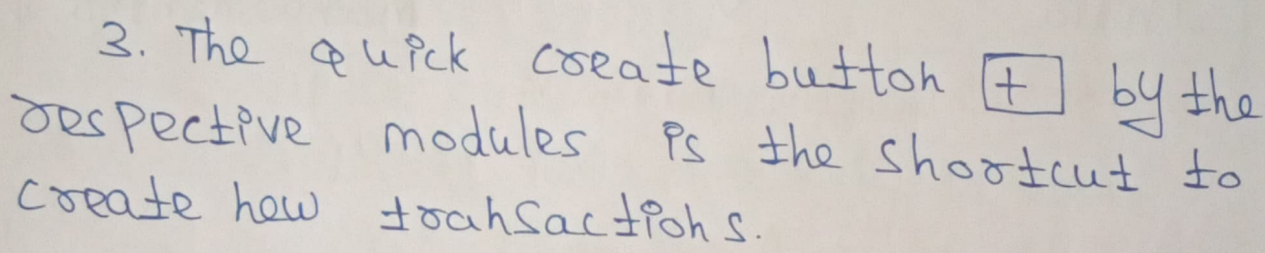 3. The quick create button [+] by the
respective modules is the shortcut to
create new transactions.